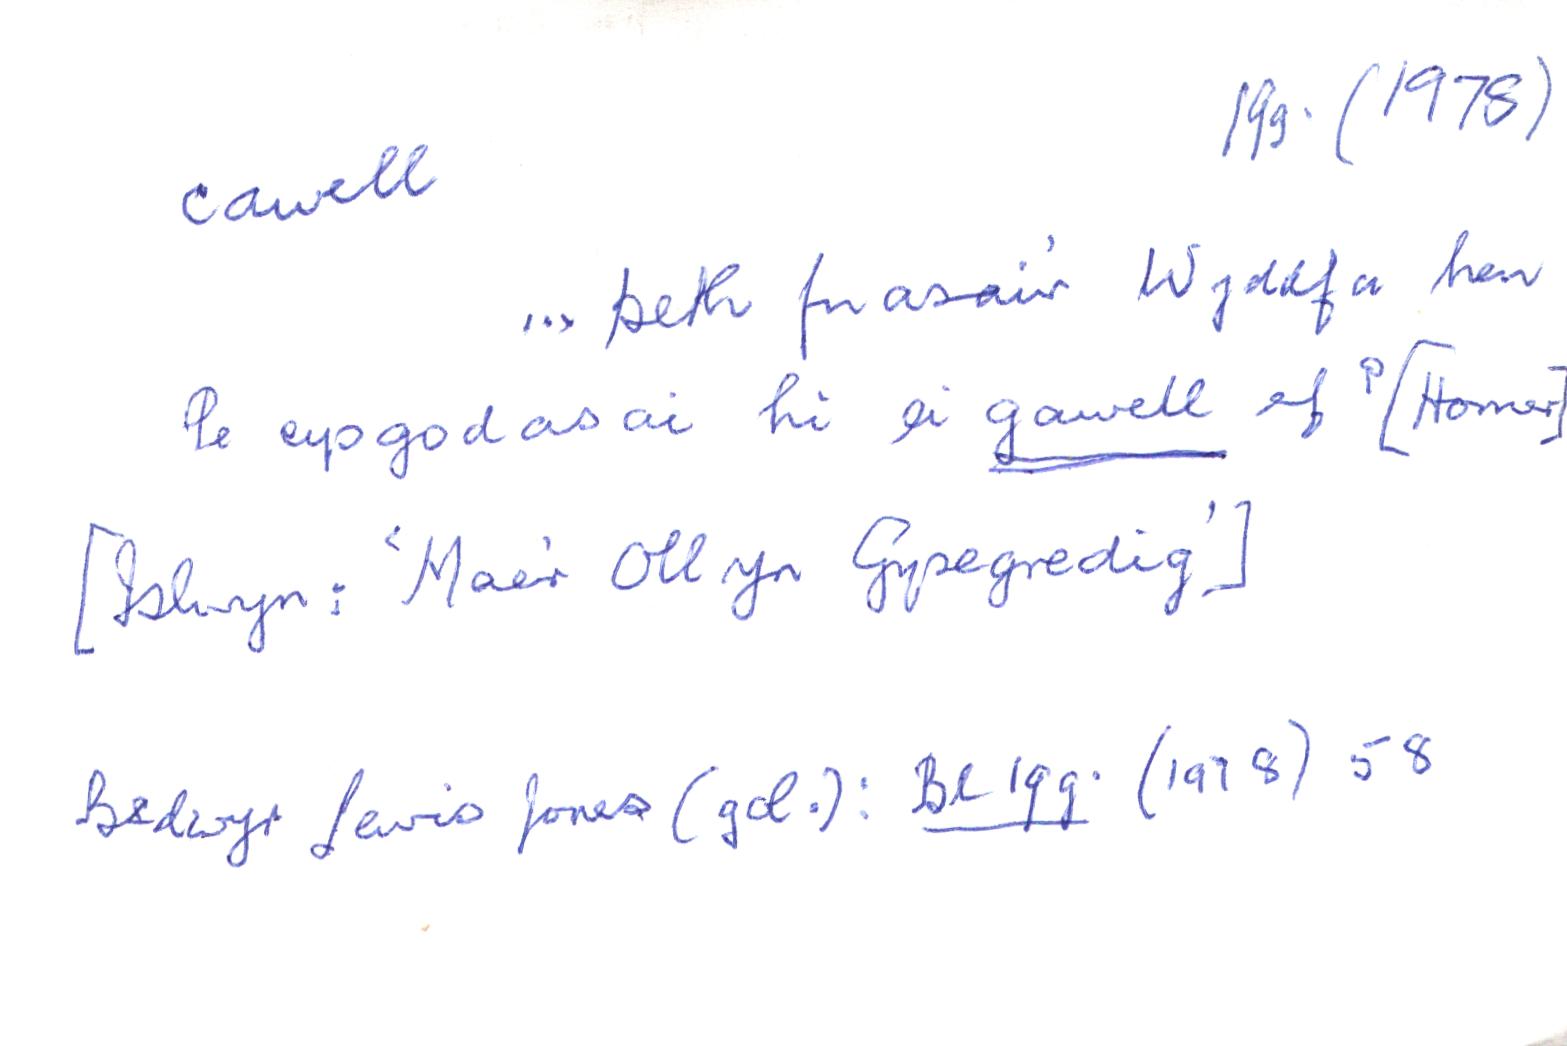 19g. (1978)
cawell
... beth fuasai'r Wyddfa hen
Pe cysgodasai hi ei gawell ef? [Homer]
[Islwyn: 'Mae'r Oll yn Gysegredig']
Bedwyr Lewis Jones (gol.): Bl 19g. (1978) 58